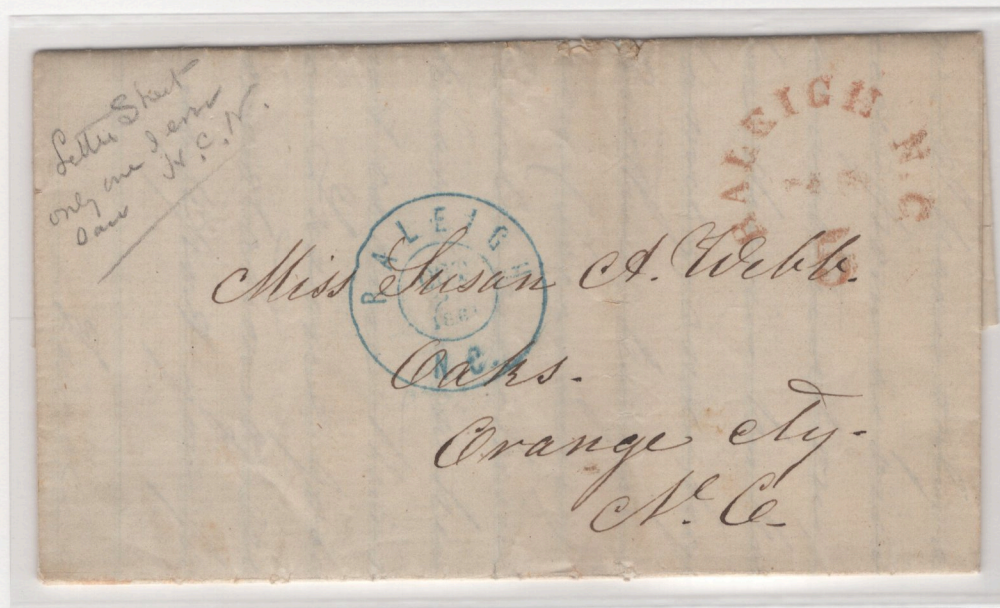 Letter Sheet
only one I ever
saw H. C. N.
RALEIGH N.C
5
RALEIGH
N.C.
Miss Susan A. Webb.
Oaks.
Orange Cty.
N. C.